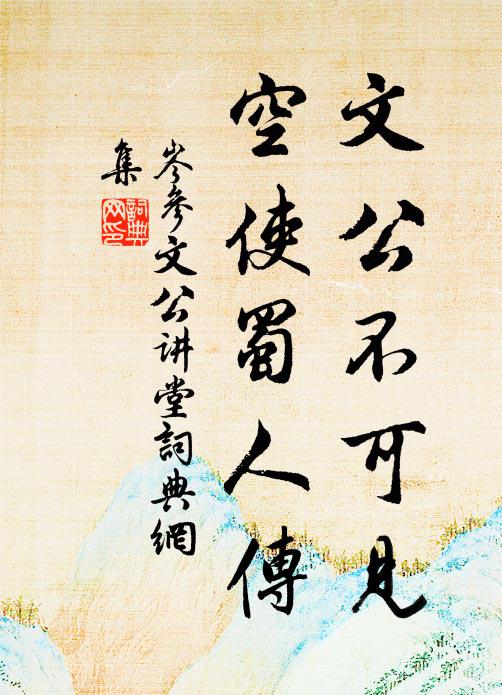 文公不可見
空使蜀人傳
岑參文公讲堂詞典網
集
詞典
网印